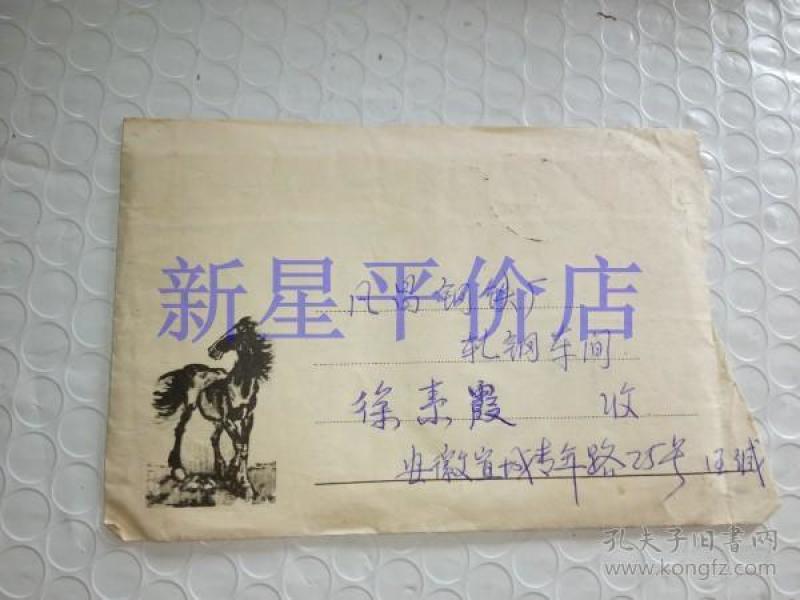 新星平价店
凡昌钢铁厂
轧钢车间
徐素霞 收
安徽宣城青年路25号 汪缄
孔夫子旧书网
www.kongfz.com